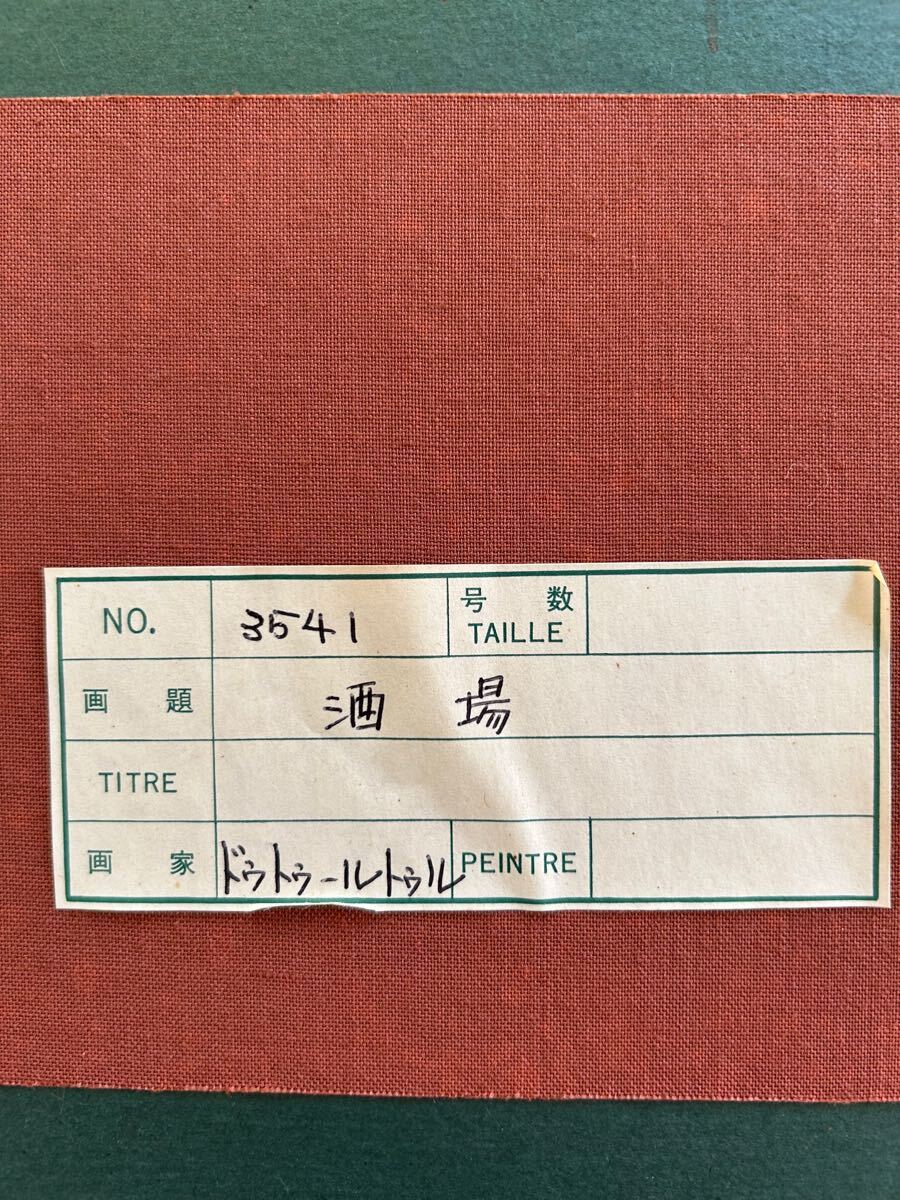 NO. 3541 号数 TAILLE
画題 酒場
TITRE
画家 ドゥトゥールトゥル PEINTRE